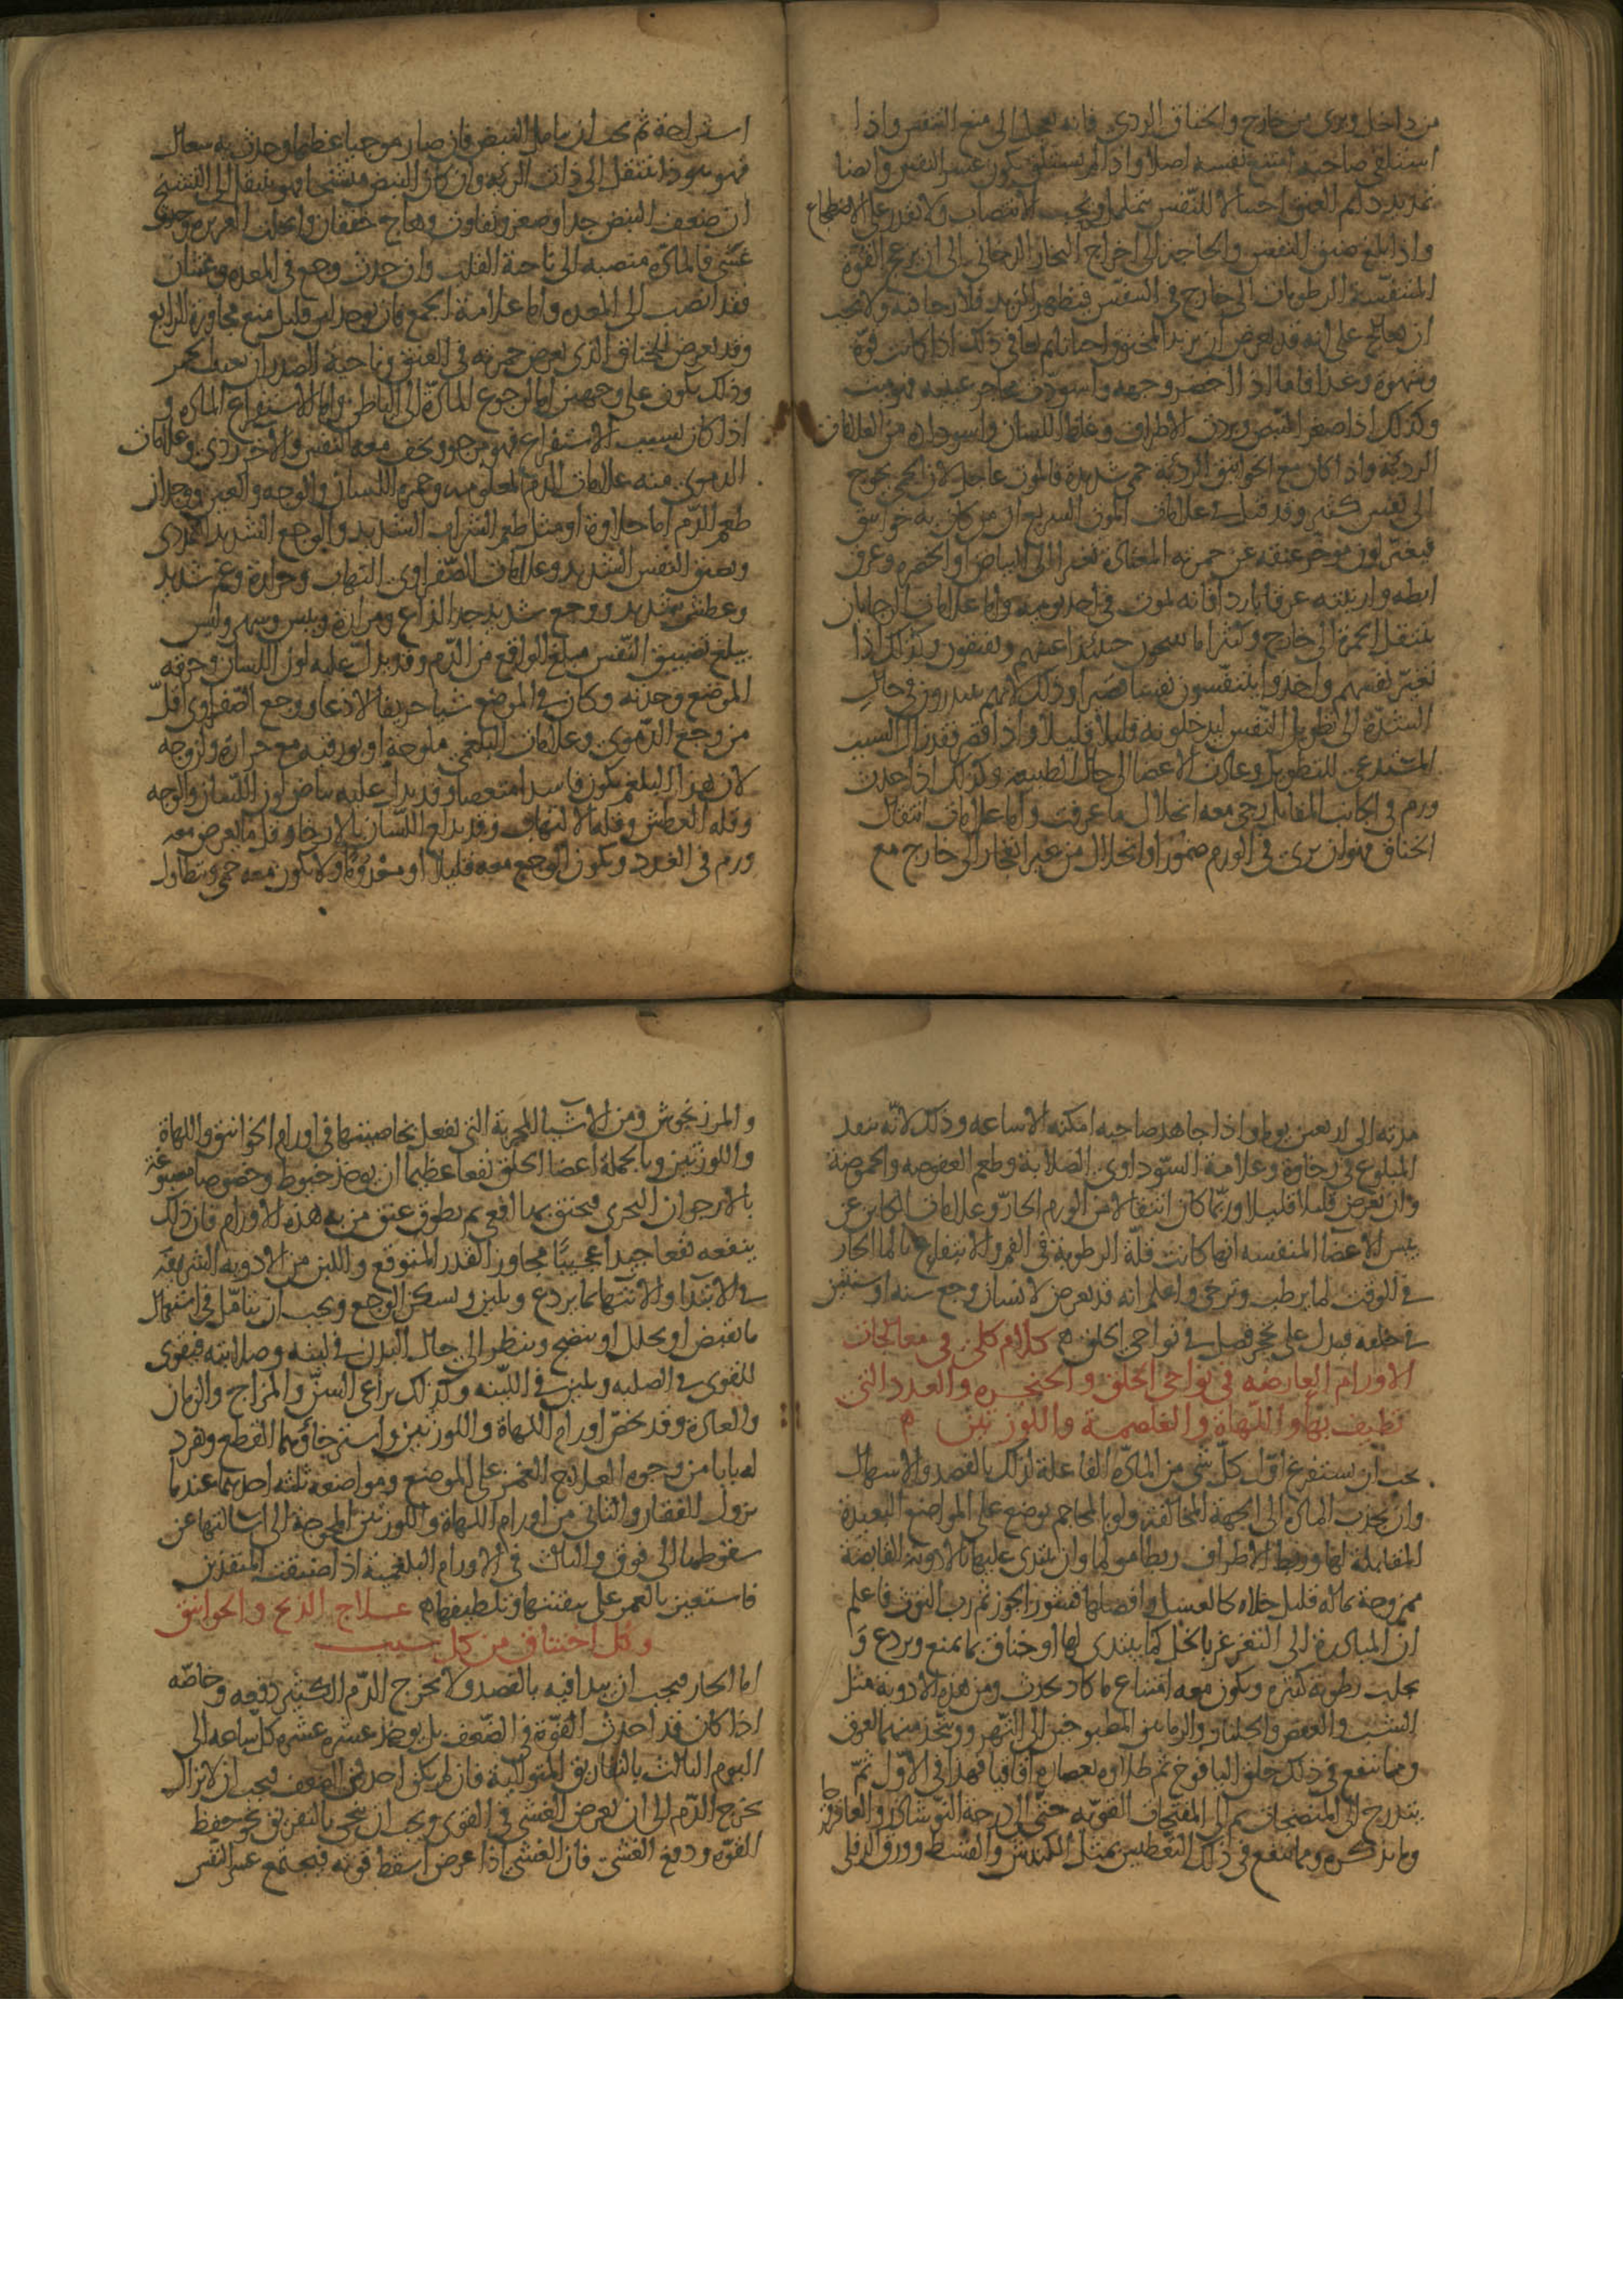 من داخل ويرى من خارج والخناق الردي فانه يحمل الى منع التنفس واذا
استلقى صاحبه امتنع نفسه اصلا واذا لم يستلق يكون عسر النفس وايضا
تمديد دايم العنق احتيالا للتنفس ويحب الانتصاب ولا يقدر على الاضطجاع
واذا بلغ ضيق النفس والحاجة الى اخراج البخار الدخاني الى ان يزعج القوة
المتنفسة الرطوبات الى خارج في التنفس فيظهر الزبد فلا رجا فيه ولا يجب
ان يعالج على انه قد يعرض ان يزبد المخنوق احيانا ثم يعافى ذلك اذا كانت قوة
وشهوة وغذا فاما اذا اخضر وجهه واسودت محاجر عينيه فهو ميت
وكذلك اذا صغر النبض وبرد الاطراف وغلظ اللسان واسوداده من العلامات
الرديئة واذا كان مع الخوانيق الرديئة حمى شديدة فالموت عاجل لان الحمى تحوج
الى نفس كثير وقد قيل في علامات الموت السريع ان من كان به خوانيق
فيتغير لون موخر عنقه عن حمرته المعتادة تغيرا الى البياض او الخضرة وعرق
ابطه وارنبته عرقا باردا فانه يموت في احد يوميه واما علامات الرجا بان
تنتقل الحمرة الى خارج وكثيرا ما حينئذ اعينهم ويفيقون وكذلك اذا
تغير نفسهم واخذوا يتنفسون نفسا قصيرا وذلك لانهم في حال
الشدة الى تطويل النفس ليدخلونه قليلا قليلا واذا قصر فقد زال السبب
المستدعي للتطويل وعادت الاعضا الى حال الطبيعة وكذلك اذا حدث
ورم في الجانب المقابل رجي معه انحلال ما عرفت واما علامات انتقال
الخناق فهو ان يرى في الورم ضمورا وانحلالا من غير انفجار الى خارج مع
استراحة ثم يجب ان يتامل النبض فان صار موجيا عظيما وحدث به سعال
فهو ينتقل الى ذات الرية وان كان النبض متشنجا فهو ينتقل الى التشنج
ان ضعف النبض جدا وصغر وتفاوت وهاج خفقان وانحلت الغريزة وحدث
غشي فالمادة منصبة الى ناحية القلب وان حدث وجع في المعدة وغثيان
فقد انصب الى المعدة واما علامة الجمع فان يوجد لين قليل مع مجاوزة الرابع
وقد يعرض للخناق الذي يعرض حمرته في العنق وناحية الصدر ان تغيب الحمرة
وذلك يكون على وجهين اما لرجوع المادة الى الباطن واما لاستفراغ المادة و
اذا كان بسبب الاستفراغ فهو مرجو ويخف معه النفس والاخر ردي وعلامات
الدموي منه علامات الدم المعلومة وحمرة اللسان والوجه والعين ووجدان
طعم الدم اما حلاوة او مثل طعم الشراب الشديد والوجع الشديد التمددي
وضيق النفس الشديد وعلامات الصفراوي التهاب وحرارة وغم شديد
وعطش شديد ووجع شديد جدا لذاع ومرارة ويبس وسهر وليس
يبلغ تضييق النفس مبلغ الواقع من الدم وقد يدل عليه لون اللسان وحرقة
الموضع وحدته وكان في الموضع شيا حريفا لاذعا ووجع الصفراوي اقل
من وجع الدموي وعلامات البلغمي ملوحة او بورقية مع حرارة ولزوجة
لان هذا البلغم يكون فاسدا متعفنا وقد يدل عليه بياض لون اللسان والوجه
وقلة العطش وقلة الالتهاب وقد يدلع اللسان بالارخا وقلما يعرض معه
ورم في الغدد ويكون الوجع معه قليلا او مفقودا ولا يكون معه حمى ويتطاول
مدته الى اربعين يوما واذا جاهد صاحبه امكنه الاساغة وذلك لانه ينفذ
المبلوع في رخاوة وعلامة السوداوي الصلابة وطعم العفوصة والحموضة
وان يعرض قليلا قليلا وربما كان انتقالا من الورم الحار وعلامات الكاين عن
يبس الاعضا المنفسة انها كانت قلة الرطوبة في الفم والانتفاع بالما الحار
في الوقت لما يرطب ويرخي واعلم انه قد يعرض لانسان وجع سنة او سنتين
في حلقه فيدل على تحجر فصل في نواحي الحلق كلام كلي في معالجات
الاورام العارضة في نواحي الحلق والحنجرة والغدد التي
تطيف بها واللهاة والغلصمة واللوزتين
يجب ان يستفرغ اول كل شي من المادة الفاعلة لذلك بالفصد والاسهال
وان يجذب المادة الى الجهة المخالفة ولو بالمحاجم يوضع على المواضع البعيدة
المقابلة لها وربط الاطراف ربطا مولما وان يبتدي عليها بالادوية القابضة
ممزوجة بماله قليل جلاء كالعسل وافضلها قشور الجوز ثم رب التوت فاعلم
ان المبادرة الى التغرغر بالخل كما يبتدي لها او خناق مما يمنع ويردع و
يجلب رطوبة كثيرة ويكون معه امتناع ما كاد يحدث ومن هذه الادوية مثل
الشب والعفص والجلنار والرمانين المطبوخين الى التهري ويتخذ منهما لعوق
ومما ينفع في ذلك حلق اليافوخ ثم طلاوه بعصارة اقاقيا فهذا في الاول ثم
يتدرج الى المنضجات ثم الى المفتحات القوية حتى الى درجة النوشادر والعاقرقرحا
وما نذكره ومما ينفع في ذلك التعطيس بمثل الكندش والقسط وورق الدفلى
والمرزنجوش ومن الاشيا المجربة التي تفعل بخاصيتها في اورام الخوانيق واللهاة
واللوزتين وبالجملة اعضا الحلق نفعا عظيما ان يوخذ خيوط وخصوصا مصبوغة
بالارجوان البحري فيخنق بها افعى ثم يطوق عنق من به هذه الاورام فان ذلك
ينفعه نفعا جيدا عجيبا مجاوز القدر المتوقع واللبن من الادوية الشريفة
في الابتدا والانتها بما يردع ويلين ويسكن الوجع ويجب ان يتامل في استعمال
ما يقبض او يحلل او ينضج وينظر الى حال البدن في لينه وصلابته فيقوى
القوي في الصلبة ويلين في اللينة وكذلك يراعى السن والمزاج والزمان
والعادة وقد يخص اورام اللهاة واللوزتين واسترخاؤهما القطع ونفرد
له بابا من وجوه العلاج الغمز على الموضع ومواضعه ثلثة احدها عند ما
يزول الفقار والثاني من اورام اللهاة واللوزتين المحوجة الى اشالتها عن
سقوطها الى فوق والثالث في الاورام البلغمية اذا ضيقت المنفذين
فاستعين بالغمز على تلطيفها علاج الذبح والخوانيق
وكل اختناق من كل سبب
اما الحار فيجب ان يبدا فيه بالفصد ولا يخرج الدم الكثير دفعة وخاصة
اذا كان قد احدث القوة في الضعف بل يوخذ عشرة عشرة كل ساعة الى
اليوم الثالث بالتفاريق المتوالية فان لم يكن احدث الضعف فيجب ان لا يزال
يخرج الدم الى ان يعرض الغشي في القوي ويجب ان ينحى بالتفريق نحو حفظ
القوة ودفع الغشي فان الغشي اذا عرض اسقط قوته فيجتمع عسر النفس